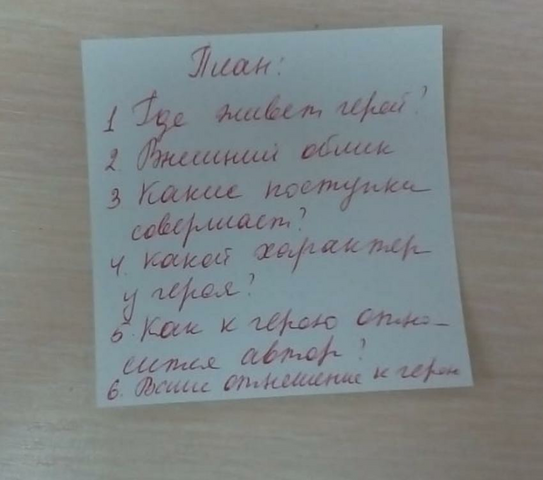 План:
1 Где живет герой?
2. Внешний облик
3. Какие поступки
совершает?
4. Какой характер
у героя?
5. Как к герою отно-
сится автор?
6. Ваше отношение к герою